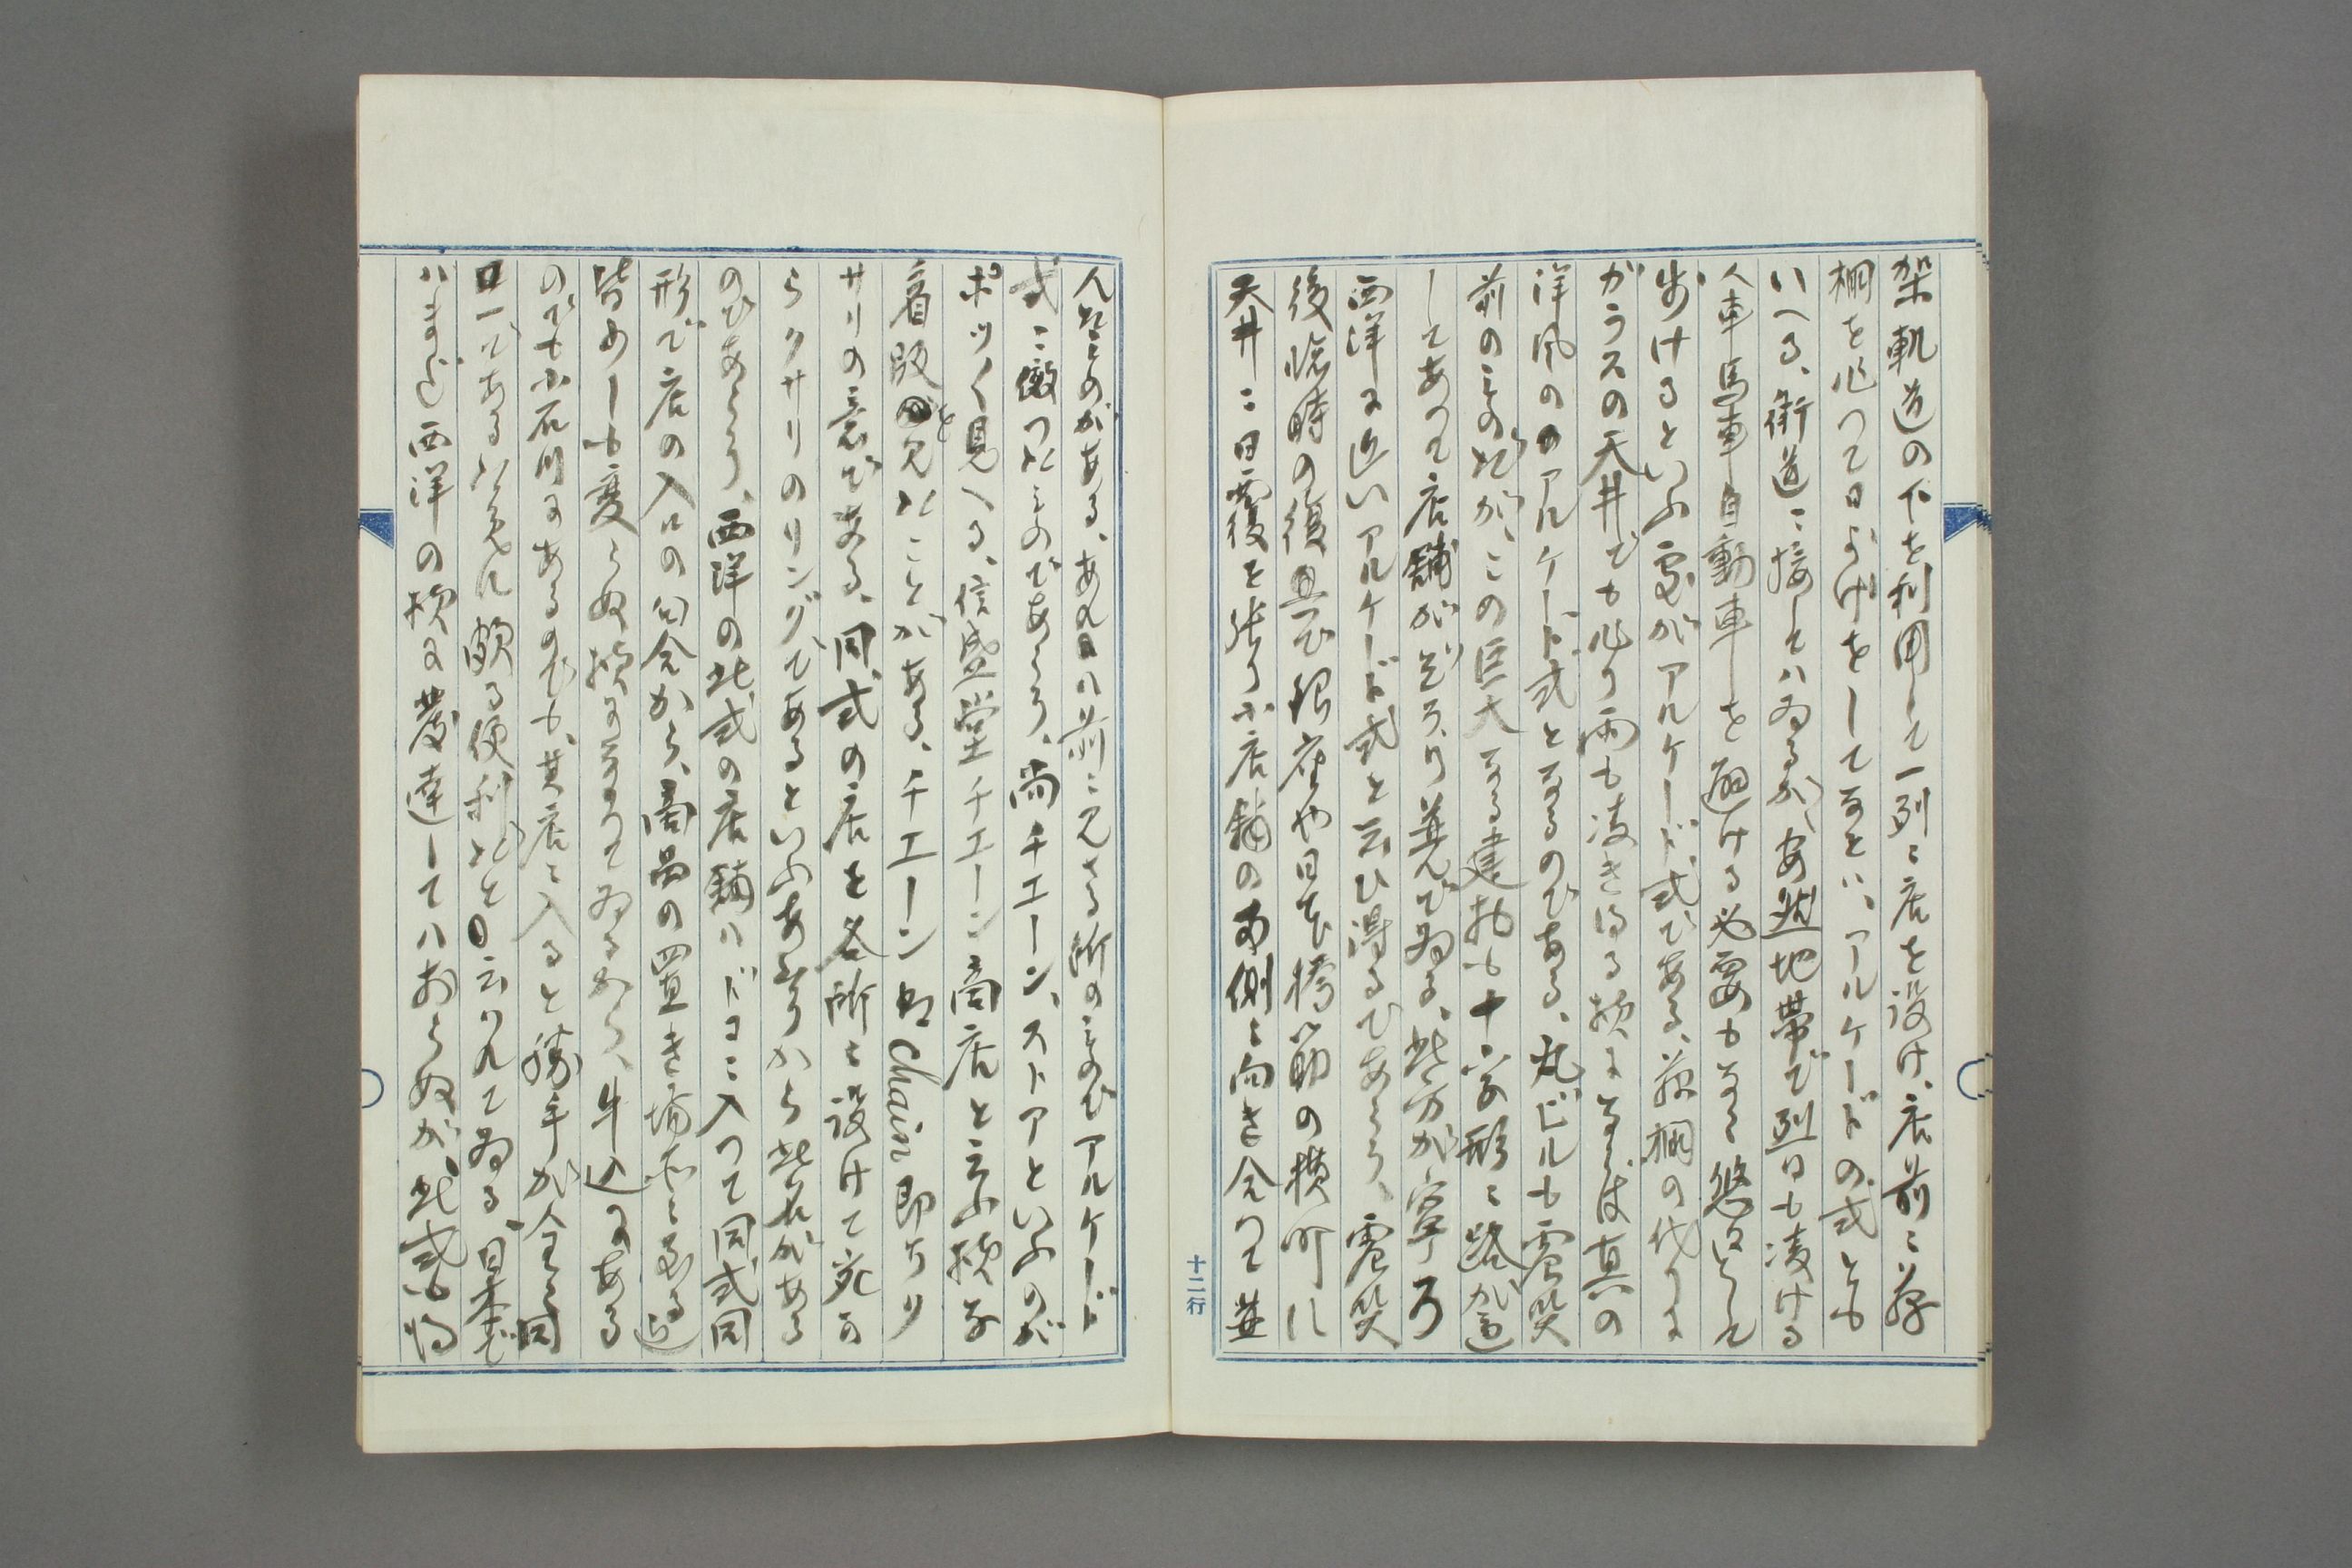 架軌道の下を利用して一列に店を設け、店前に葭
棚を作つて日よけをしてあるといアルケードの式とも
いへる、街道に接してハゐるが、安然地帯で烈日も凌ける
人車馬車自動車を避ける必要もなく悠々として
歩けるといふ處がアルケード式である、葭棚の代りに
ガラスの天井でも作り雨も凌き得る様になれば真の
洋風のアルケード式となるのである、丸ビルも震災
前のものだが、この巨大なる建物も十字形に路が通
してあつて店舗がぞろり並んでゐる、此方が寧ろ
西洋に近いアルケード式と云ひ得るであらう、震災
後臨時の復興で銀座や日本橋筋の横町に
天井に日覆を張り小店舗の両側に向き合つて並
十二行
人だものがある、あれハ前に見たる所のものでアルケード
式に傚つたものであらう、尚チエーン、ストアといふのが
ポツ〱見へる、信盛堂チエーン商店と云ふ様な
看版を見たことがある、チエーンハchain即ちク
サリの意である、同式の店を各所に設けて宛な
らクサリのリングであるといふあたりから此名がある
のであらう、西洋の此式の店舗ハドコに入つて同式同
形で店の入口の向合から、商品の置き場所に至る迄
皆めしも変らぬ様になつてゐるから、牛込にある
のでも小石川にあるのでも、其店に入ると勝手が全く同
一である故に頗る便利だと云ハれてゐる、日本で
ハまだ西洋の様に発達してハおらぬが此式も将